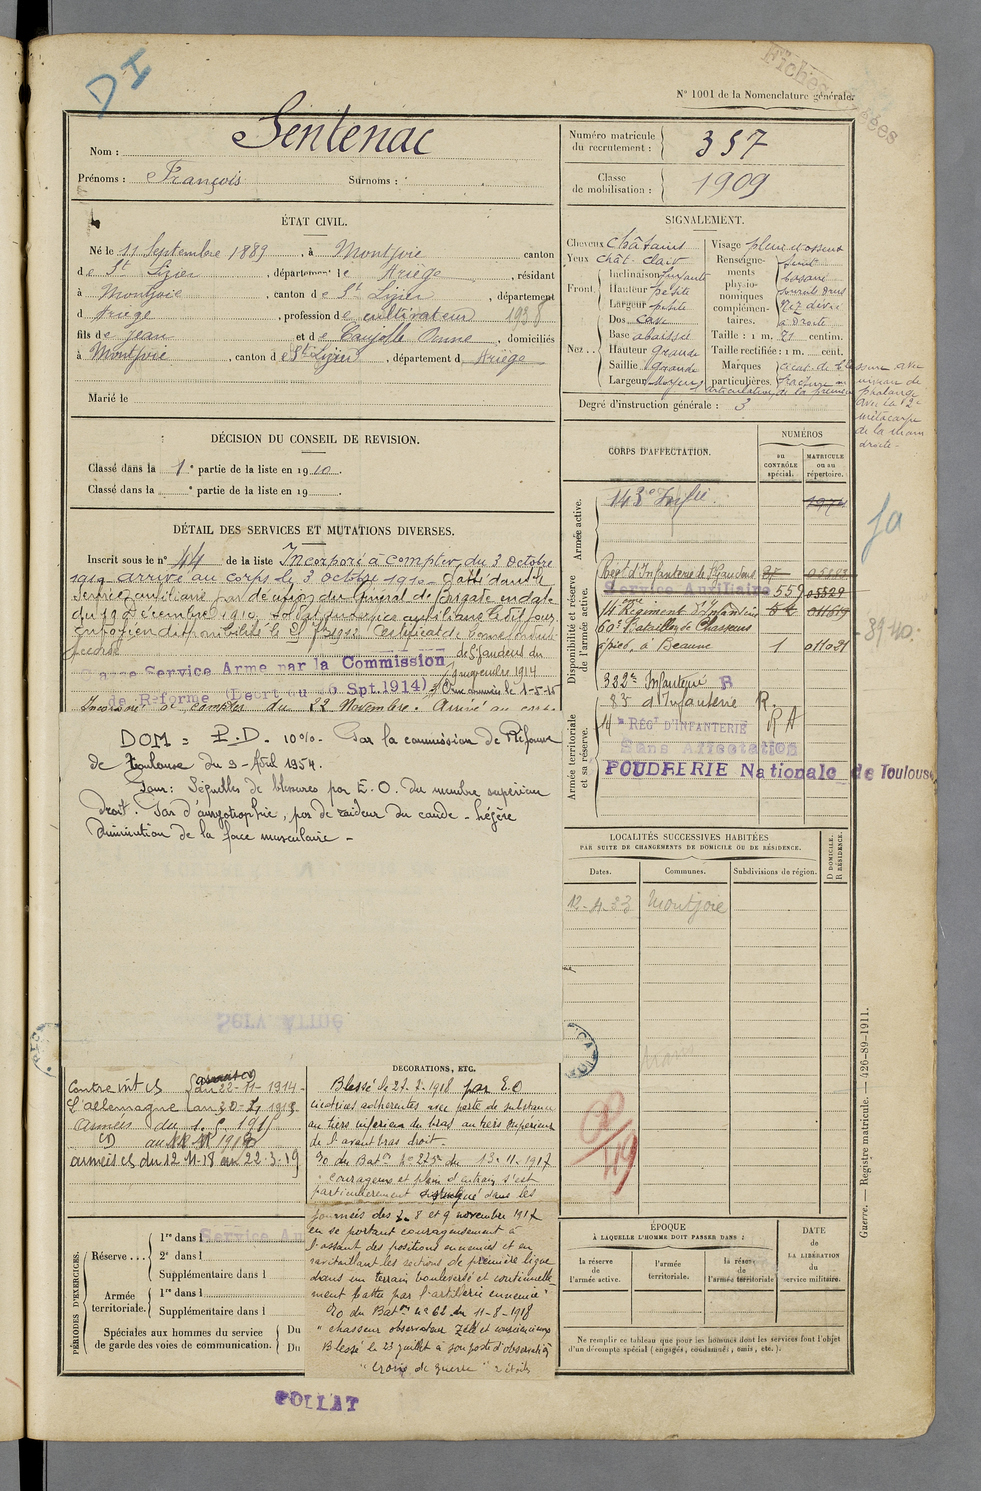 DI
Fiches
N° 1001 de la Nomenclature générale.
Nom : Sentenac
Prénoms : François Surnoms :
Numéro matricule du recrutement : 357
Classe de mobilisation : 1909
ÉTAT CIVIL.
Né le 11 Septembre 1889, à Montjoie canton
de St Lizier, département de Ariège, résidant
à Montjoie, canton de St Lizier, département
d Ariège, profession de cultivateur 1938
fils de Jean et de Caujolle Anne, domiciliés
à Montjoie, canton de St Lizier, département d Ariège
Marié le
SIGNALEMENT.
Cheveux châtains
Yeux chât. clair
Front. Inclinaison fuyante
Hauteur petite
Largeur petite
Nez.. Dos cave
Base abaissée
Hauteur grande
Saillie grande
Largeur moyenne
Visage plein et osseux
Renseignements physionomiques complémentaires. Teint
basané
sourcils drus
Nez dévié
à droite
Taille : 1 m. 71 centim.
Taille rectifiée : 1 m. cent.
Marques particulières. cicat. de blessure avec
fracture au niveau de
articulation de la première phalange
avec le 2e
métacarpe
de la main
droite.
Degré d'instruction générale : 3
DÉCISION DU CONSEIL DE REVISION.
Classé dans la 1e partie de la liste en 1910.
Classé dans la e partie de la liste en 19
DÉTAIL DES SERVICES ET MUTATIONS DIVERSES.
Inscrit sous le n° 44 de la liste Incorporé à compter du 3 octobre
1910 arrivé au corps le 3 octobre 1910. Classé dans le
Service auxiliaire par décision du Général de Brigade en date
du 19 Décembre 1910. Soldat du service auxiliaire ledit jour.
Envoyé en disponibilité le Certificat de bonne conduite
accordé
de St Gaudens du
Classé Service Armé par la Commission
de Réforme (Décret du 26 Spt. 1914)
Incorporé à compter du 22 Novembre. Arrivé au corps
CORPS D'AFFECTATION.
NUMÉROS
au CONTRÔLE spécial.
MATRICULE ou au répertoire.
Armée active.
143e Infie.
Disponibilité et réserve de l'armée active.
Regt d'Infanterie de St Gaudens
Service Auxiliaire 559
14eme Régiment d'Infanterie
60e Bataillon de Chasseurs
à pied, à Beaune 1
332e Infanterie B
Armée territoriale et sa réserve.
83 d'Infanterie R.
14e REGT D'INFANTERIE RA
Sans Affectation
POUDRERIE Nationale de Toulouse
39-40.
DOM = P.D. 10%. Par la commission de Réforme
de Toulouse du 9 Avril 1954.
Pour: Séquelles de blessures par E.O. du membre supérieur
droit. Pas d'amyotrophie, pas de raideur du coude. Légère
diminution de la force musculaire -
LOCALITÉS SUCCESSIVES HABITÉES
PAR SUITE DE CHANGEMENTS DE DOMICILE OU DE RÉSIDENCE.
D DOMICILE. R RÉSIDENCE.
Dates. Communes. Subdivisions de région.
12-4-33 Montjoie
Serv Armé
Contre int CS
L'allemagne
du 22-11-1914
armées du
armées CS du 12-11-18 au 22-3-19
DÉCORATIONS, ETC.
Blessé le 2 1918 par E.O
cicatrices adhérentes avec perte de substance
au tiers inférieur du bras au tiers supérieur
de l'avant bras droit.
Go du Baton n° 225 du 13-11-1917
"courageux et plein d'entrain s'est
particulièrement distingué dans les
journées des 8 et 9 novembre 1917
en se portant courageusement à
l'assaut des positions ennemies et en
ravitaillant les sections de première ligne
dans un terrain bouleversé et continuelle-
ment battu par l'artillerie ennemie"
Go du Baton n° 62 du 11-8-1918
"chasseur observateur zélé et consciencieux
Blessé le 23 juillet à son poste d'observation
"Croix de guerre" 2 étoiles
PÉRIODES D'EXERCICES.
Réserve... 1re dans l
2e dans l
Supplémentaire dans l
Armée territoriale. 1re dans l
Supplémentaire dans l
Spéciales aux hommes du service de garde des voies de communication. Du
Du
ÉPOQUE
À LAQUELLE L'HOMME DOIT PASSER DANS :
la réserve de l'armée active.
l'armée territoriale.
la réserve de l'armée territoriale
DATE de LA LIBÉRATION du service militaire.
Ne remplir ce tableau que pour les hommes dont les services font l'objet
d'un décompte spécial (engagés, condamnés, omis, etc.).
Guerre. — Registre matricule. — 426-89-1911.
POLLAT